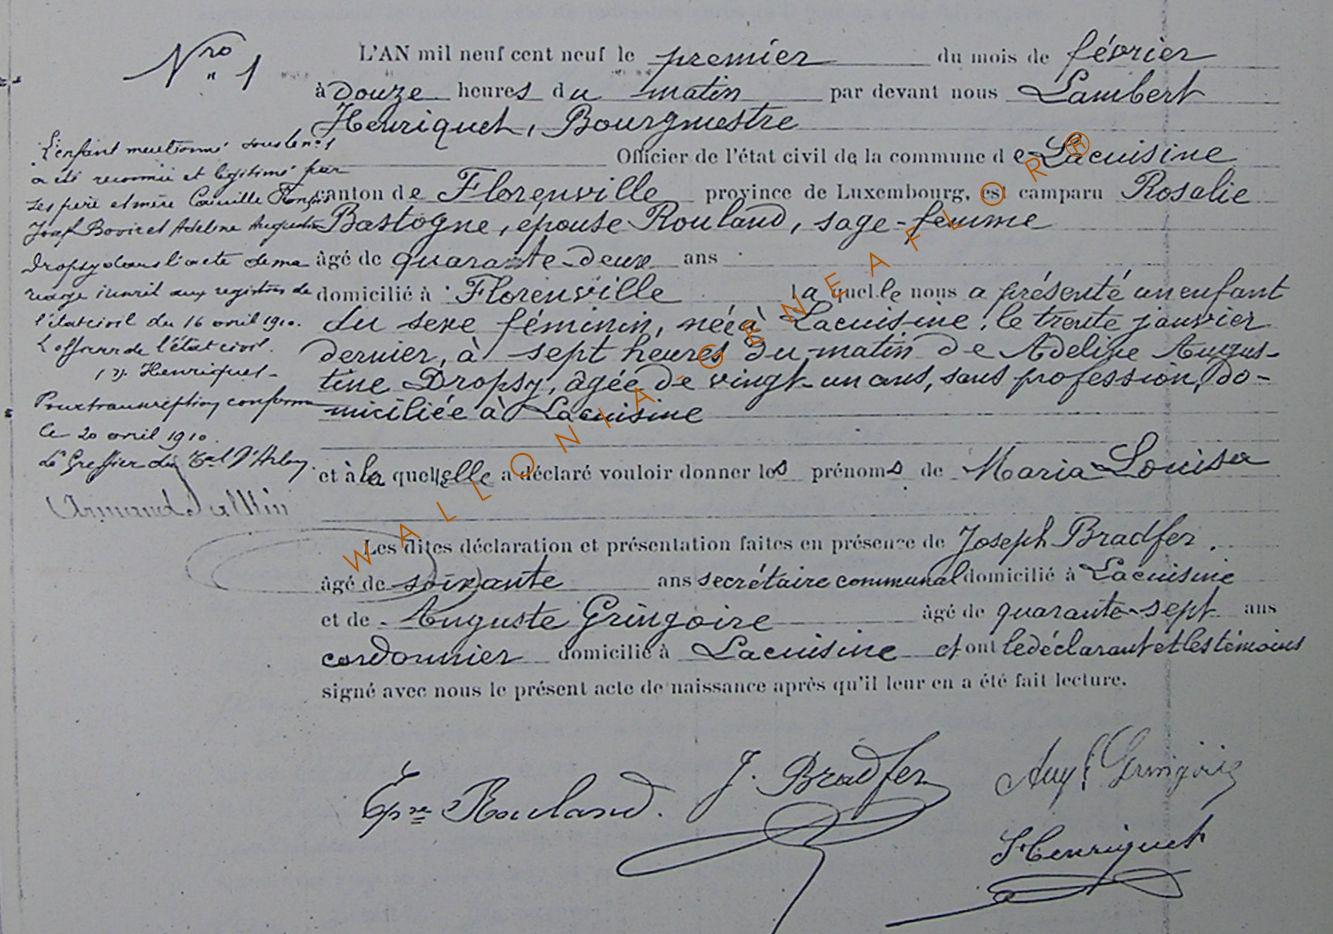 Nro 1
L'AN mil neuf cent neuf le premier du mois de février
à douze heures du matin par devant nous Lambert
Henriquet, Bourgmestre
Officier de l'état civil de la commune de Lacuisine
canton de Florenville province de Luxembourg, est comparu Rosalie
Bastogne, épouse Rouland, sage-femme
âgé de quarante-deux ans
domicilié à Florenville laquelle nous a présenté un enfant
du sexe féminin, née à Lacuisine, le trente janvier
dernier, à sept heures du matin de Adeline Augus-
tine Dropsy, âgée de vingt-un ans, sans profession, do-
miciliée à Lacuisine
et à la quelle elle a déclaré vouloir donner les prénoms de Maria Louisa
Les dites déclaration et présentation faites en présence de Joseph Bradfer,
âgé de soixante ans secrétaire communal domicilié à Lacuisine
et de Auguste Gringoire âgé de quarante-sept ans
cordonnier domicilié à Lacuisine et ont le déclarant et les témoins
signé avec nous le présent acte de naissance après qu'il leur en a été fait lecture.
L'enfant mentionné sous le n° 1
a été reconnu et légitimé par
ses père et mère Camille
Joseph Bovir et Adeline Augustine
Dropsy dans l'acte de ma
riage inscrit aux registres de
l'état civil du 16 avril 1910.
L'officier de l'état civil.
Henriquet
Pour transcription conforme
Ce 20 avril 1910.
Le Greffier du Tal d'Arlon
Armand
Epse Rouland.
J. Bradfer
Aug. Gringoire
L Henriquet
WALLONIA-GENEAFLOR®